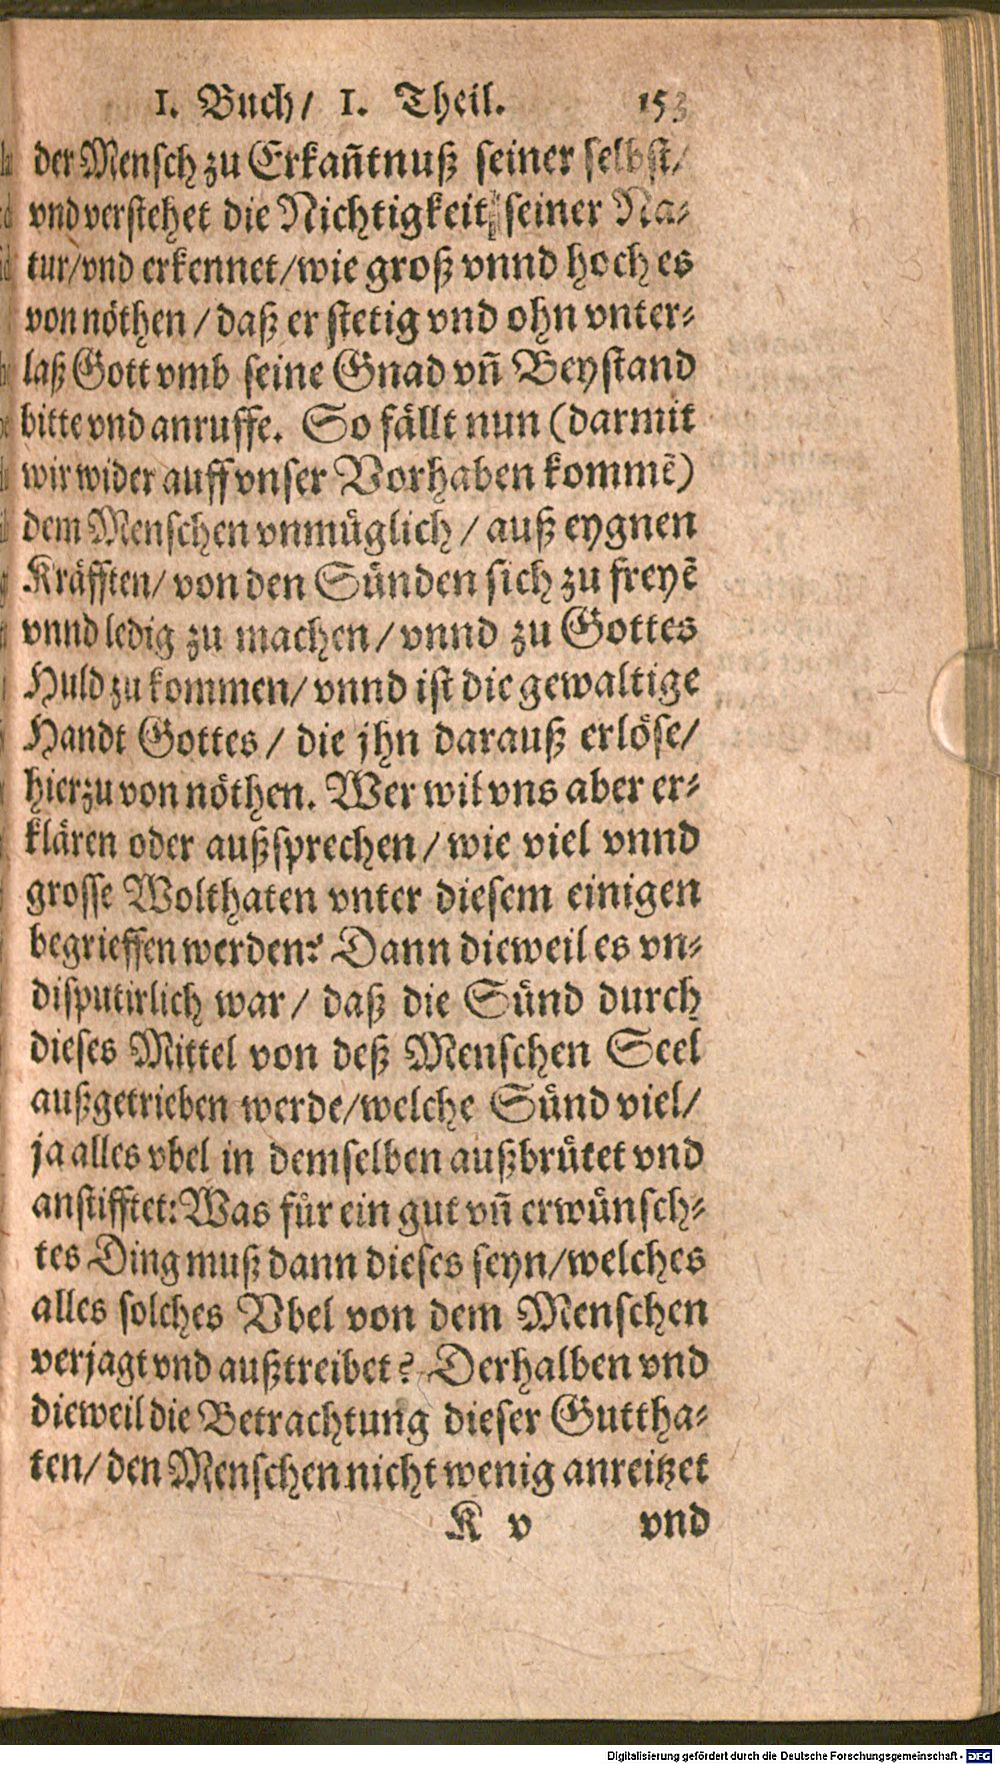 1. Buch/ 1. Theil. 153
der Mensch zu Erkañtnuß seiner selbst/
vnd verstehet die Nichtigkeit seiner Na-
tur/vnd erkennet/wie groß vnnd hoch es
von nöthen/daß er stetig vnd ohn vnter-
laß Gott vmb seine Gnad vñ Beystand
bitte vnd anruffe. So fällt nun (darmit
wir wider auff vnser Vorhaben kommẽ)
dem Menschen vnmüglich/ auß eygnen
Kräfften/ von den Sünden sich zu freyẽ
vnnd ledig zu machen/ vnnd zu Gottes
Huld zu kommen/ vnnd ist die gewaltige
Handt Gottes/ die jhn darauß erlöse/
hierzu von nöthen. Wer wil vns aber er-
klären oder außsprechen/ wie viel vnnd
grosse Wolthaten vnter diesem einigen
begrieffen werden? Dann dieweil es vn-
disputirlich war/ daß die Sünd durch
dieses Mittel von deß Menschen Seel
außgetrieben werde/welche Sünd viel/
ja alles vbel in demselben außbrütet vnd
anstifftet: Was für ein gut vñ erwünsch-
tes Ding muß dann dieses seyn/welches
alles solches Vbel von dem Menschen
verjagt vnd außtreibet? Derhalben vnd
dieweil die Betrachtung dieser Guttha-
ten/ den Menschen nicht wenig anreitzet
K v vnd
Digitalisierung gefördert durch die Deutsche Forschungsgemeinschaft - DFG